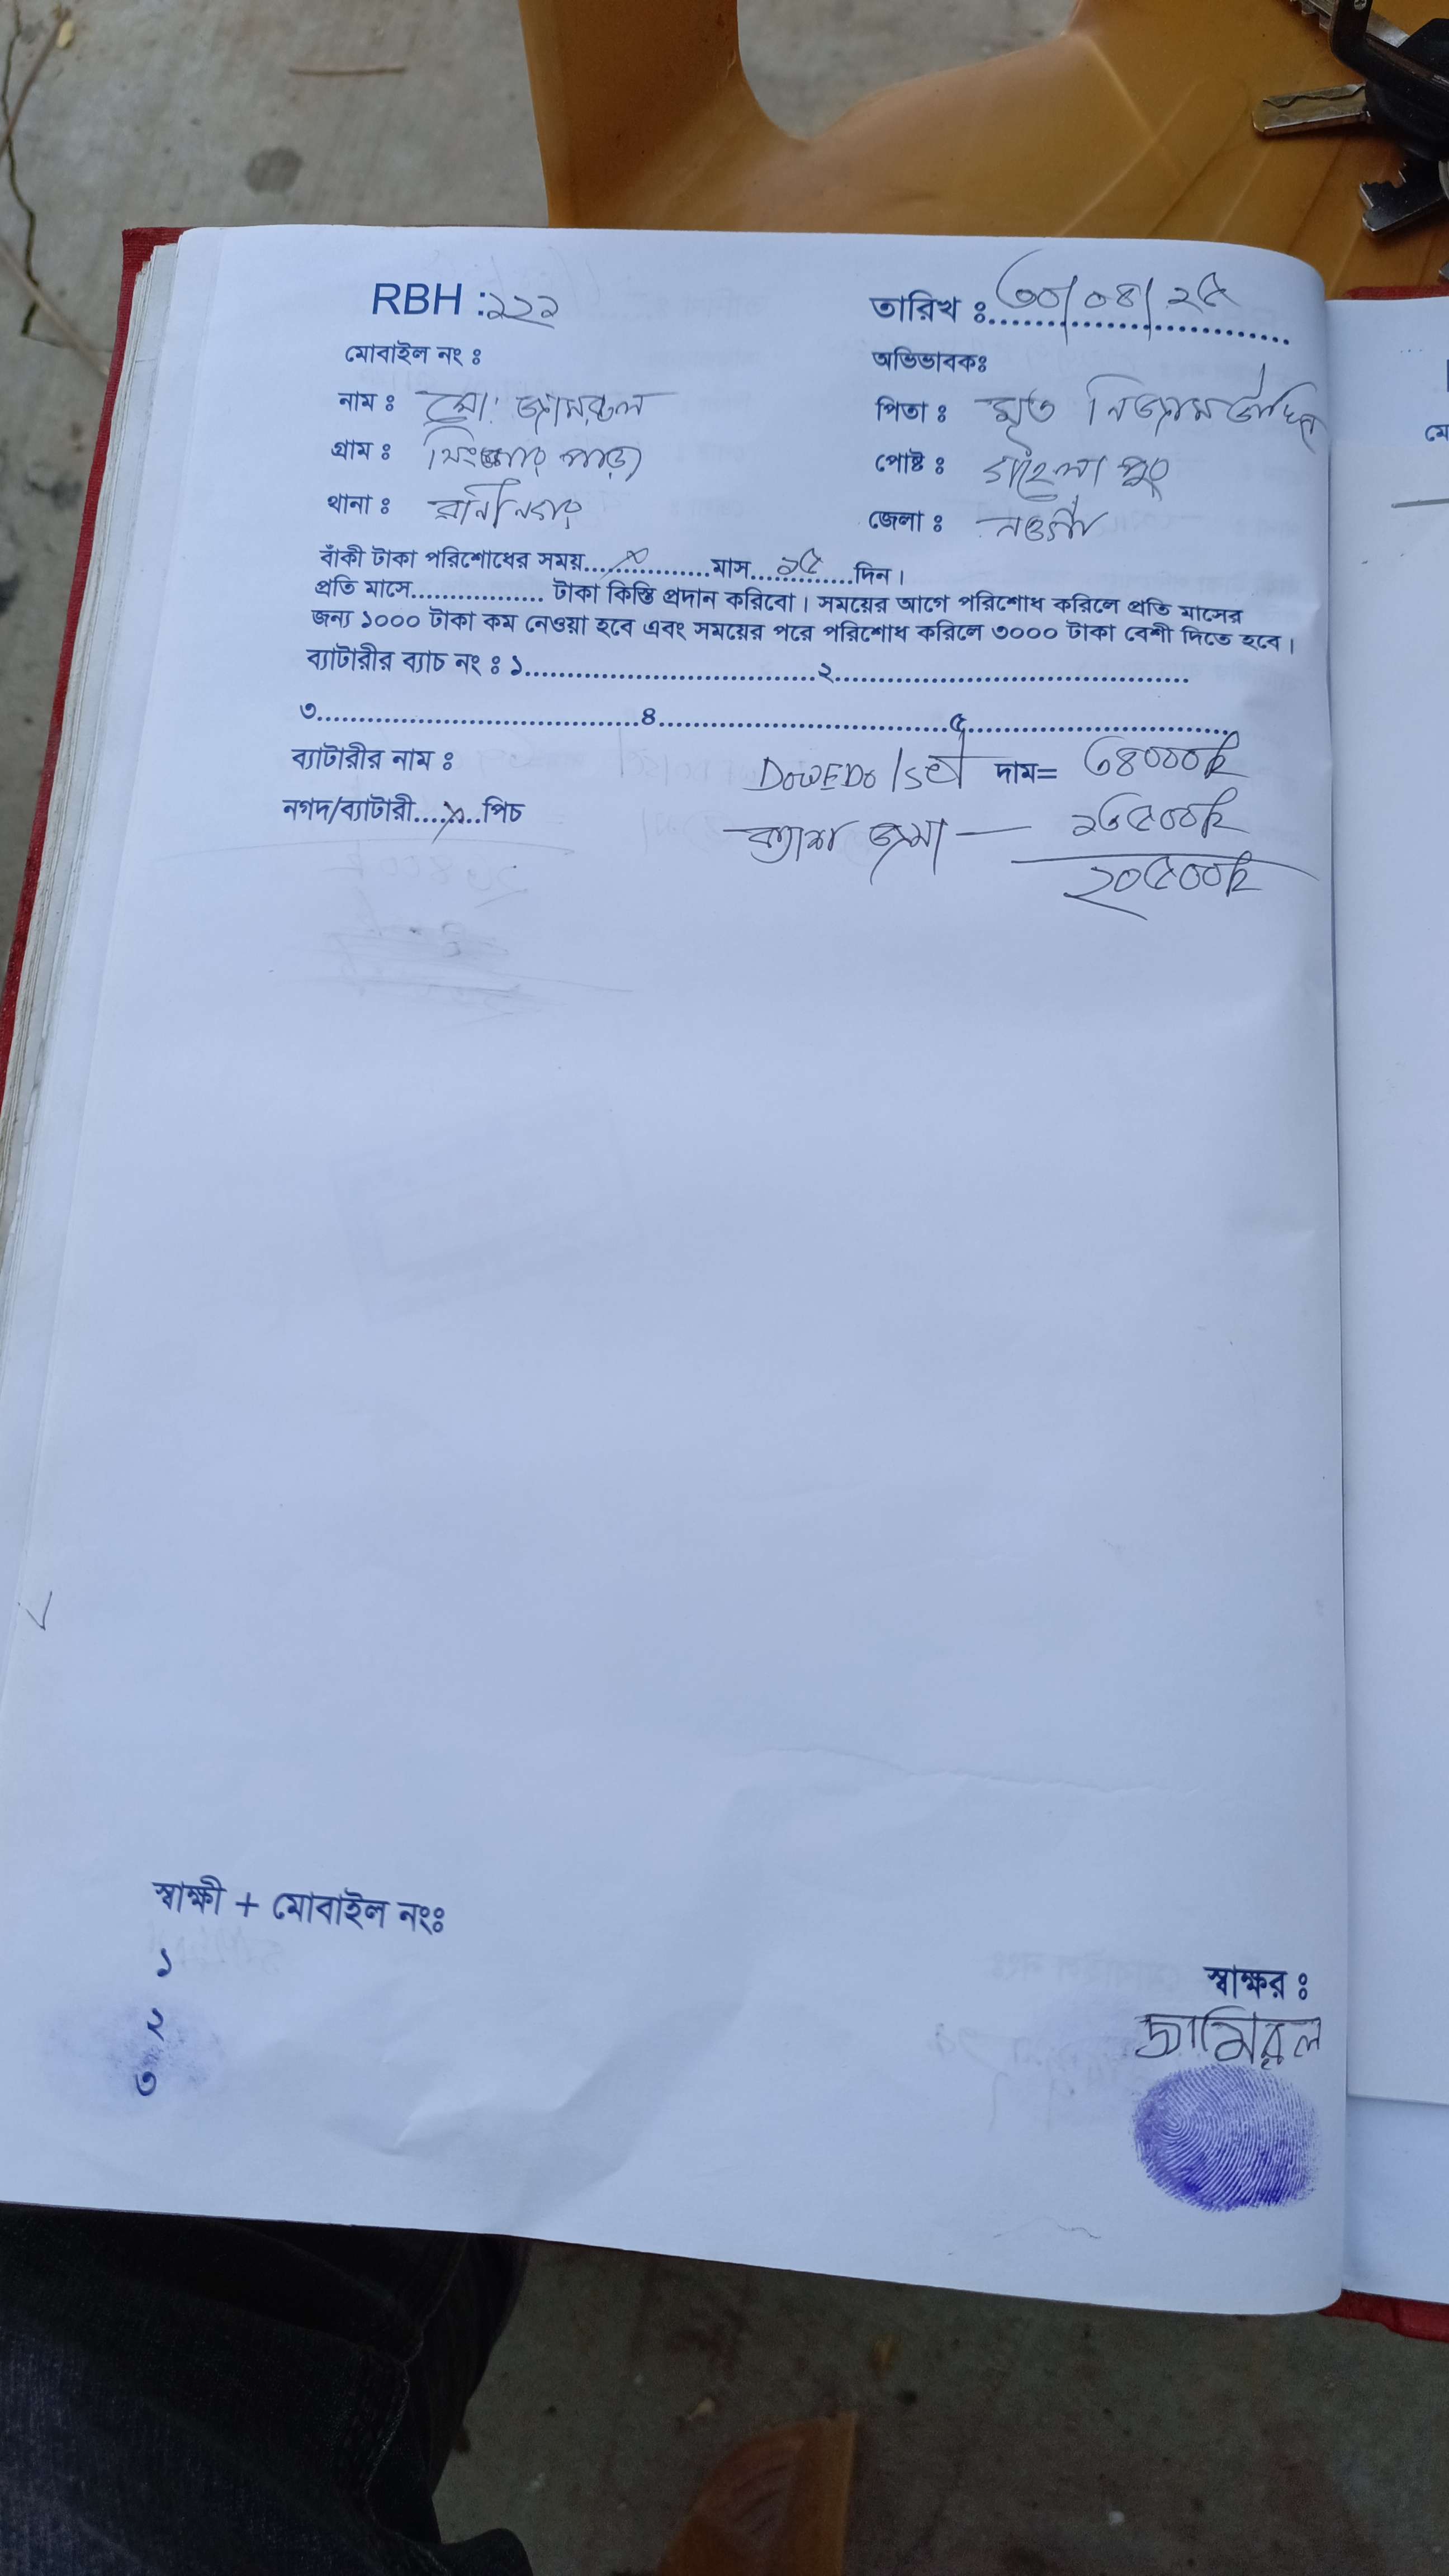 RBH : ১২১
তারিখ ঃ ৩০/০৪/২৫
মোবাইল নং ঃ
অভিভাবকঃ
নাম ঃ মো: জামরুল
পিতা ঃ মৃত নিজাম উদ্দিন
গ্রাম ঃ পাড়া
পোষ্ট ঃ পুর
থানা ঃ রানীনগর
জেলা ঃ নওগাঁ
বাঁকী টাকা পরিশোধের সময়....×....মাস....১৫....দিন।
প্রতি মাসে................ টাকা কিস্তি প্রদান করিবো। সময়ের আগে পরিশোধ করিলে প্রতি মাসের
জন্য ১০০০ টাকা কম নেওয়া হবে এবং সময়ের পরে পরিশোধ করিলে ৩০০০ টাকা বেশী দিতে হবে।
ব্যাটারীর ব্যাচ নং ঃ ১....................................২....................................
৩....................................৪....................................৫....................................
ব্যাটারীর নাম ঃ
DOWEDO 1set দাম= ৩৪০০০/=
নগদ/ব্যাটারী....×....পিচ
ক্যাশ জমা — ১৩৫০০/=
২০৫০০/=
স্বাক্ষী + মোবাইল নংঃ
১
২
৩
স্বাক্ষর ঃ
জামিরুল